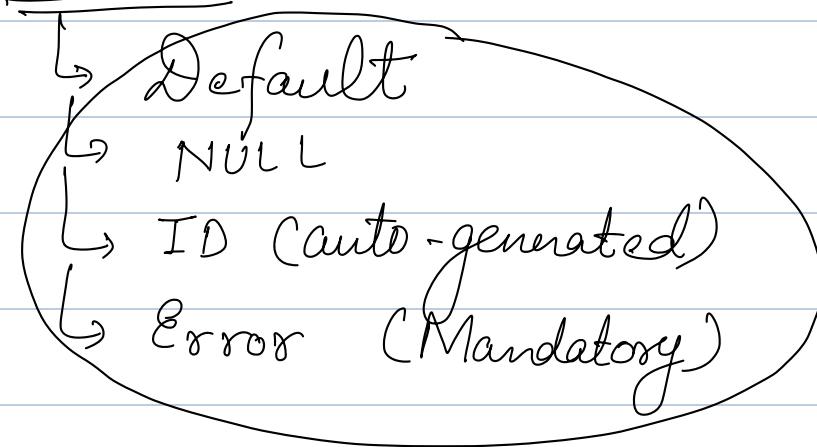 Default
NULL
ID (auto-generated)
Error (Mandatory)